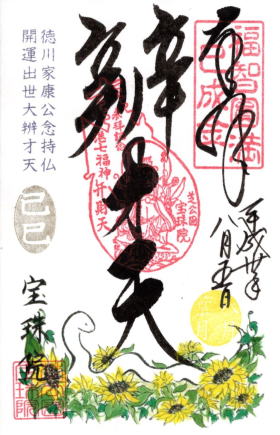 福智圓満
巳成金
奉拝
平成卅年
八月五日
辨才天
七福神弁財天
芝公園
宝珠院
徳川家康公念持仏
開運出世大辨才天
己巳
宝珠院